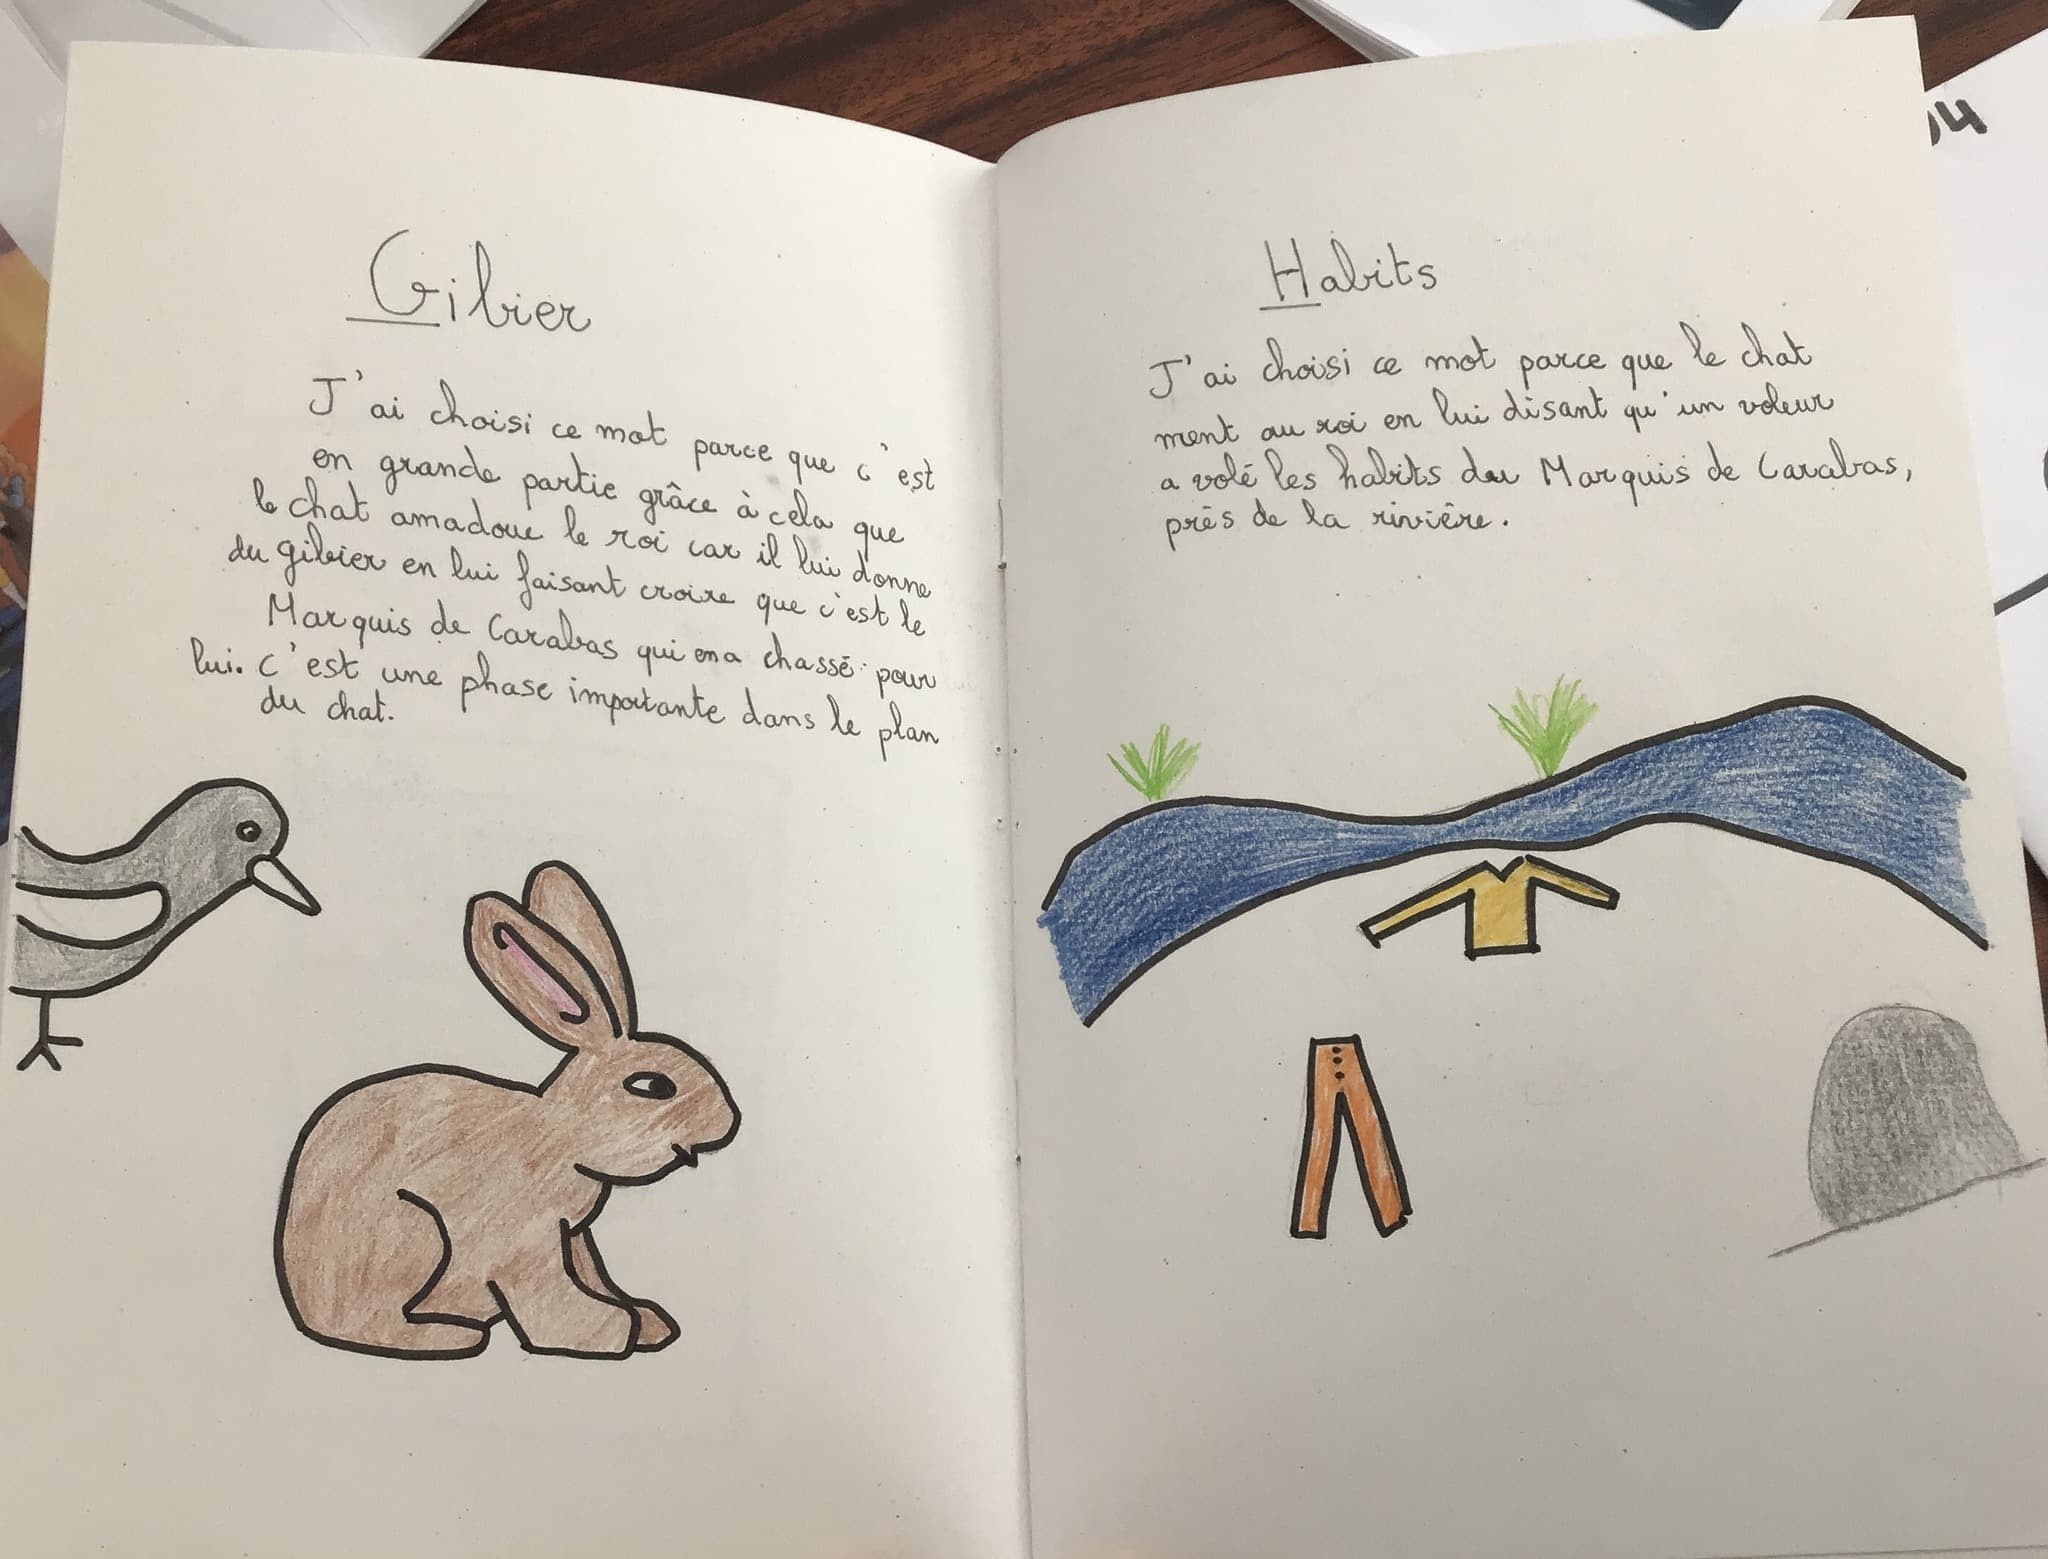 Gibier
J'ai choisi ce mot parce que c'est
en grande partie grâce à cela que
le chat amadoue le roi car il lui donne
du gibier en lui faisant croire que c'est le
Marquis de Carabas qui en a chassé pour
lui. C'est une phase importante dans le plan
du chat.
Habits
J'ai choisi ce mot parce que le chat
ment au roi en lui disant qu'un voleur
a volé les habits du Marquis de Carabas,
près de la rivière.